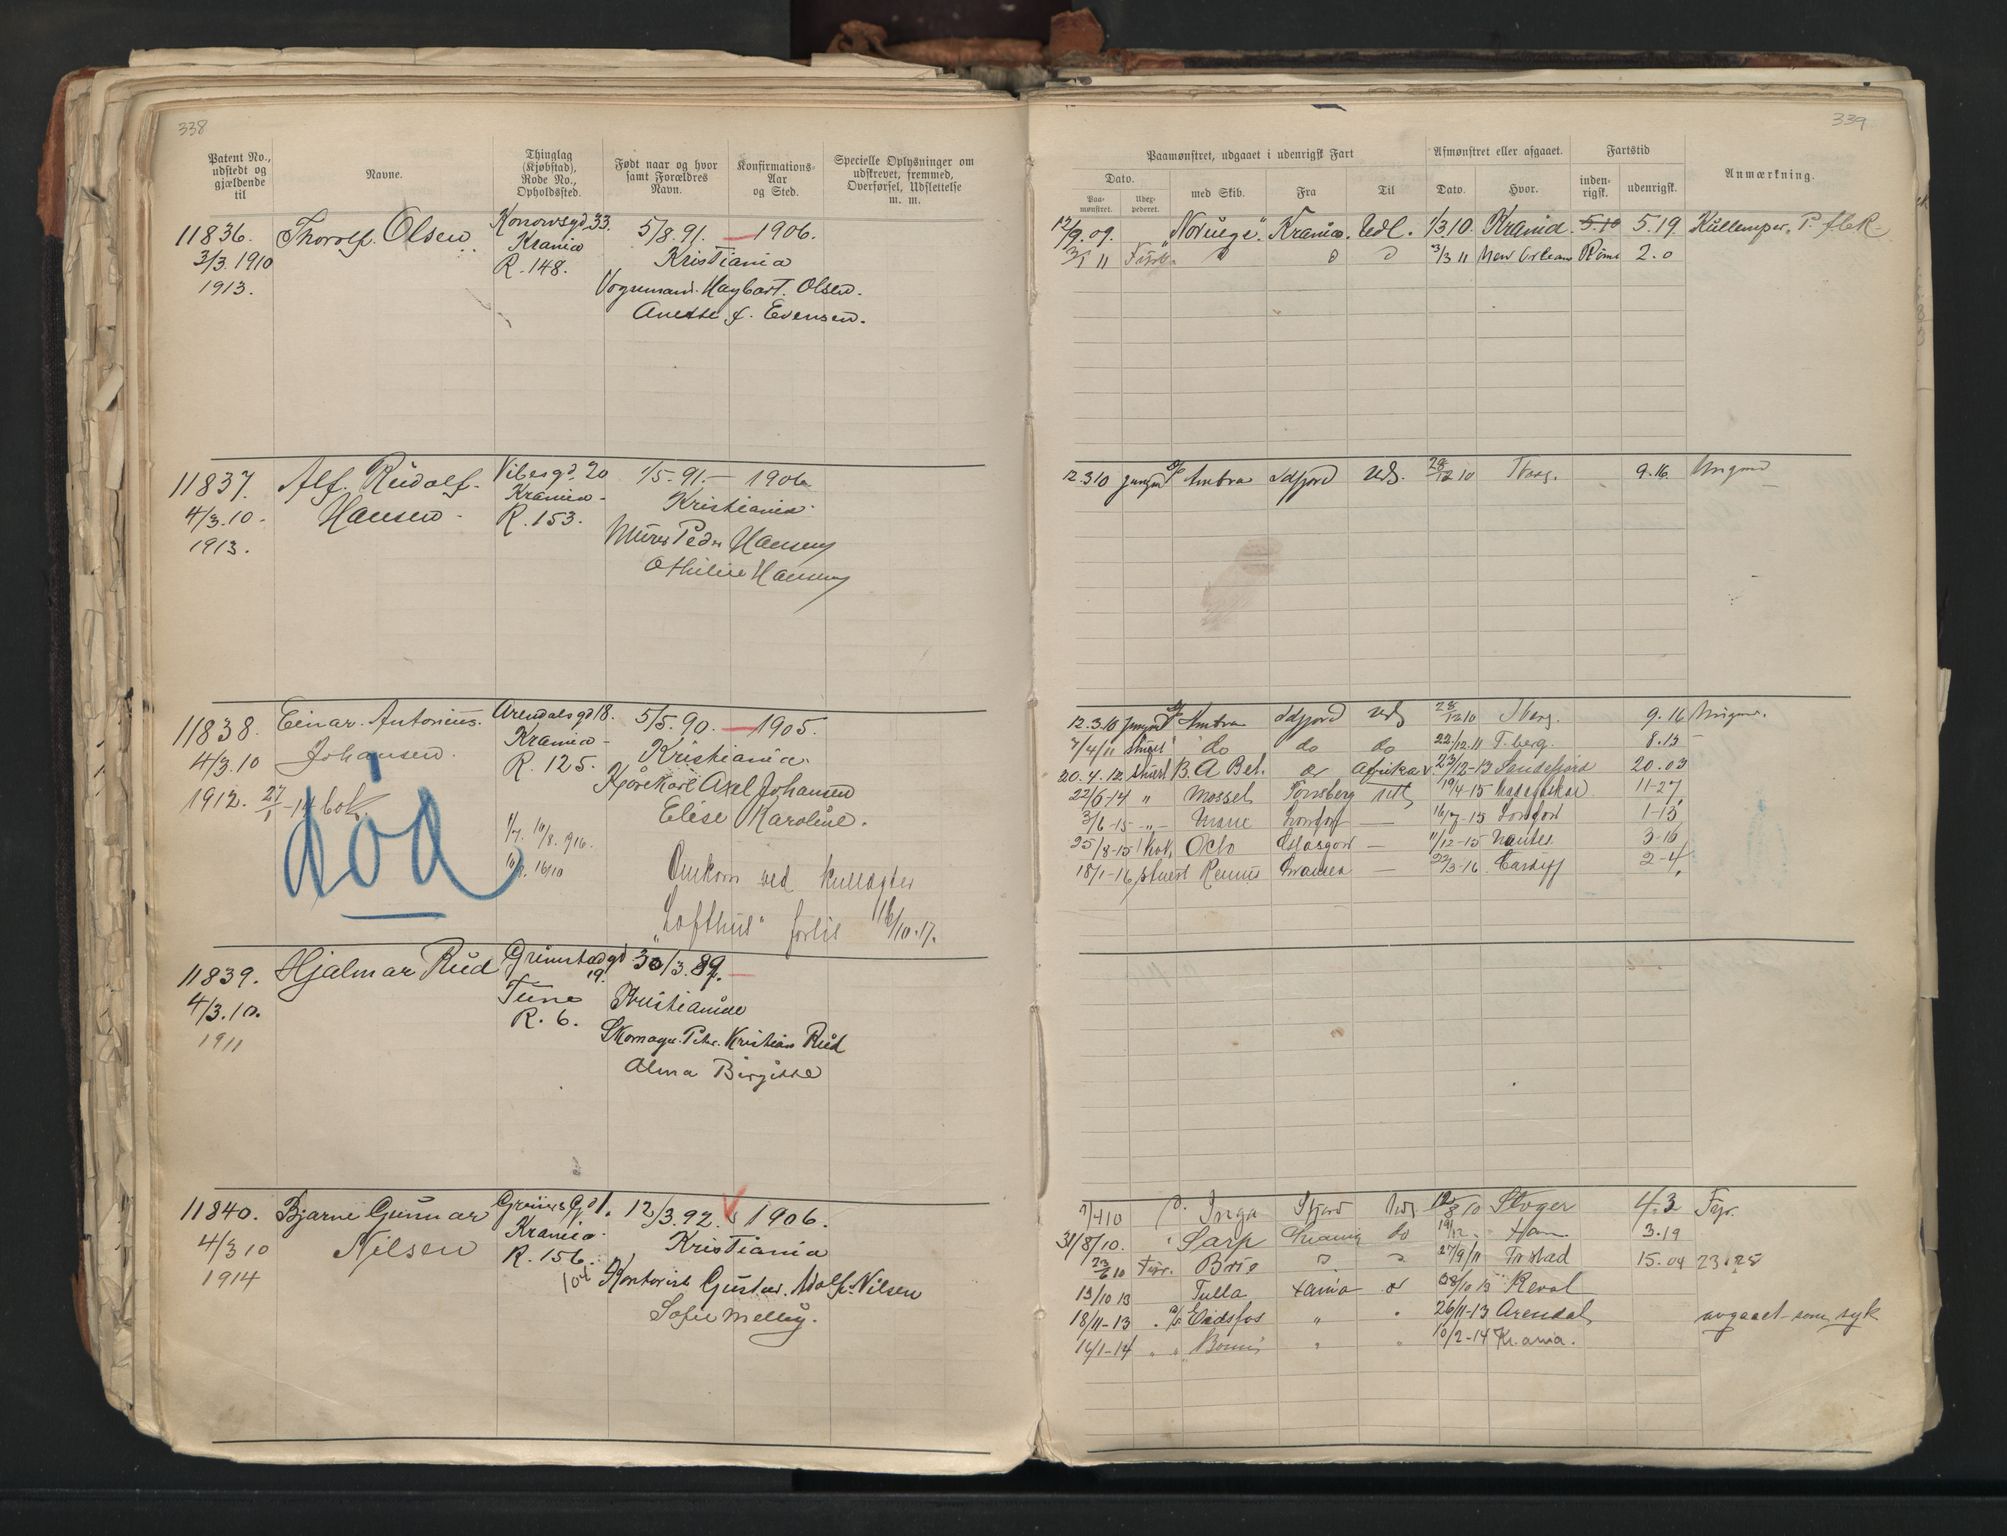 338
Patent No., udstedt og gjældende til
Navne.
Thinglag (Kjøbstad), Rode No., Opholdssted.
Født naar og hvor samt Forældres Navn.
Konfirmations-Aar og Sted.
Specielle Oplysninger om udskrevet, fremmed, Overførsel, Udslettelse m. m.
11836. Thorolf Olsen Konowsgd. 33. 5/8. 91. — 1906.
3/3. 1910 Krania Kristiania
1913. R. 148. Vognmand. Hagbart. Olsen.
Anette f. Evensen.
11837. Alf. Rudolf Vibesgd. 20 1/5-91. — 1906
4/3. 10. Hansen. Krania Kristiania.
1913. R. 153. Murer Peder Hansen
Othilie Hansen
11838. Einar. Antonius. Arendalsgd 18. 5/5. 90. — 1905.
4/3. 10 Johansen. Krania Kristiania.
1912. 27/1-14 bok R. 125. Kjørekarl Axel Johansen
Elise Karoline.
død
1/7. 10/8. 916.
16/10
Omkom ved kullagter
"Lofthus" forlis 16/10. 17.
11839. Hjalmar Rud Grimstadgd 19. 30/3. 89. —
4/3. 10. Tune Kristiania
1911 R. 6. Skomager. Peter. Kristian Rud
Alma Birgitte
11840. Bjarne Gunnar Grünersgd 1. 12/3. 92. 1906.
4/3 10 Nilsen Krania. Kristiania
1914 R. 156. Kontorist Gustav. Adolf. Nilsen
104
Sofie
339
Paamønstret, udgaaet i udenrigsk Fart
Afmønstret eller afgaaet.
Fartstid
Anmærkning.
Dato.
Paamønstret.
Udexpederet.
med Skib.
Fra
Til
Dato.
Hvor.
indenrigsk.
udenrigsk.
12/9. 09. "Noruega" Krania Udl. 1/3 10. Krania 5.10 5.19 Kullemper.
3/1 11 3/3 11 New Orleans Rømt 2.0
12. 3 10 Jungm Ambra Idfjord Uds. 28/12 10 Tbrg. 9.16
12. 3. 10 Jungm Ambra Idfjord Uds 28/12 10 Tbrg. 9.16
7/4/11 do do do 22/12. 11 T.berg. 8.13
20. 4. 12 Stuert B. A Bet. Afrika 23/12-13 Sandefjord 20.03
22/6-14 " Mossel Tønsberg 19/4-15 11-27
3/6-15 - " - London — 16/7-15 London 1-13
25/8-15 Kok Oclo Glasgow — 11/12-15 Nantes 3-16
18/1-16 Stuert Swansea — 22/3-16 Cardiff 2-4
7/4 10 Inga 10 4.3 Fyr.
31/8/10. Sarp do 3.19
23/6 10 Fyr. Brie 27/9/11 15.04 23.25
13/10 13 Tulla xania 13 Reval
18/11-13 Eidsfos " 26/11-13 Arendal avgaaet som syk
16/1-14 " " 10/2-14 Kr.ania.